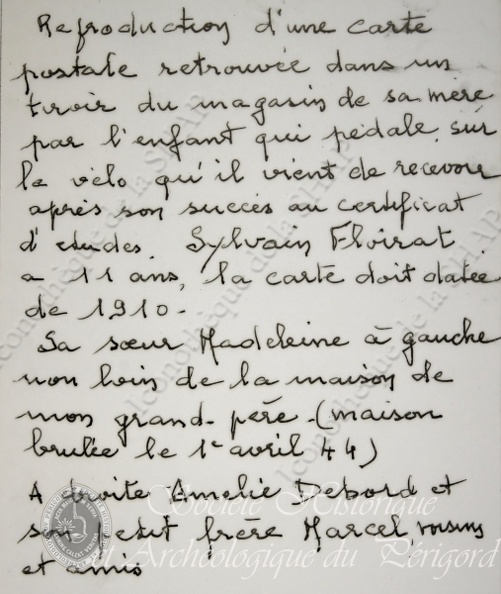 Reproduction d'une carte
postale retrouvée dans un
tiroir du magasin de sa mère
par l'enfant qui pédale sur
le vélo qu'il vient de recevoir
après son succès au certificat
d'etudes. Sylvain Floirat
a 11 ans, la carte doit datée
de 1910.
Sa sœur Madeleine à gauche
non loin de la maison de
mon grand-père (maison
brulée le 1er avril 44)
A droite Amelie Debord et
son petit frère Marcel, voisins
et amis
Iconothèque de la SHAP
Iconothèque de la SHAP
Iconothèque de la SHAP
Société Historique
et Archéologique du Périgord